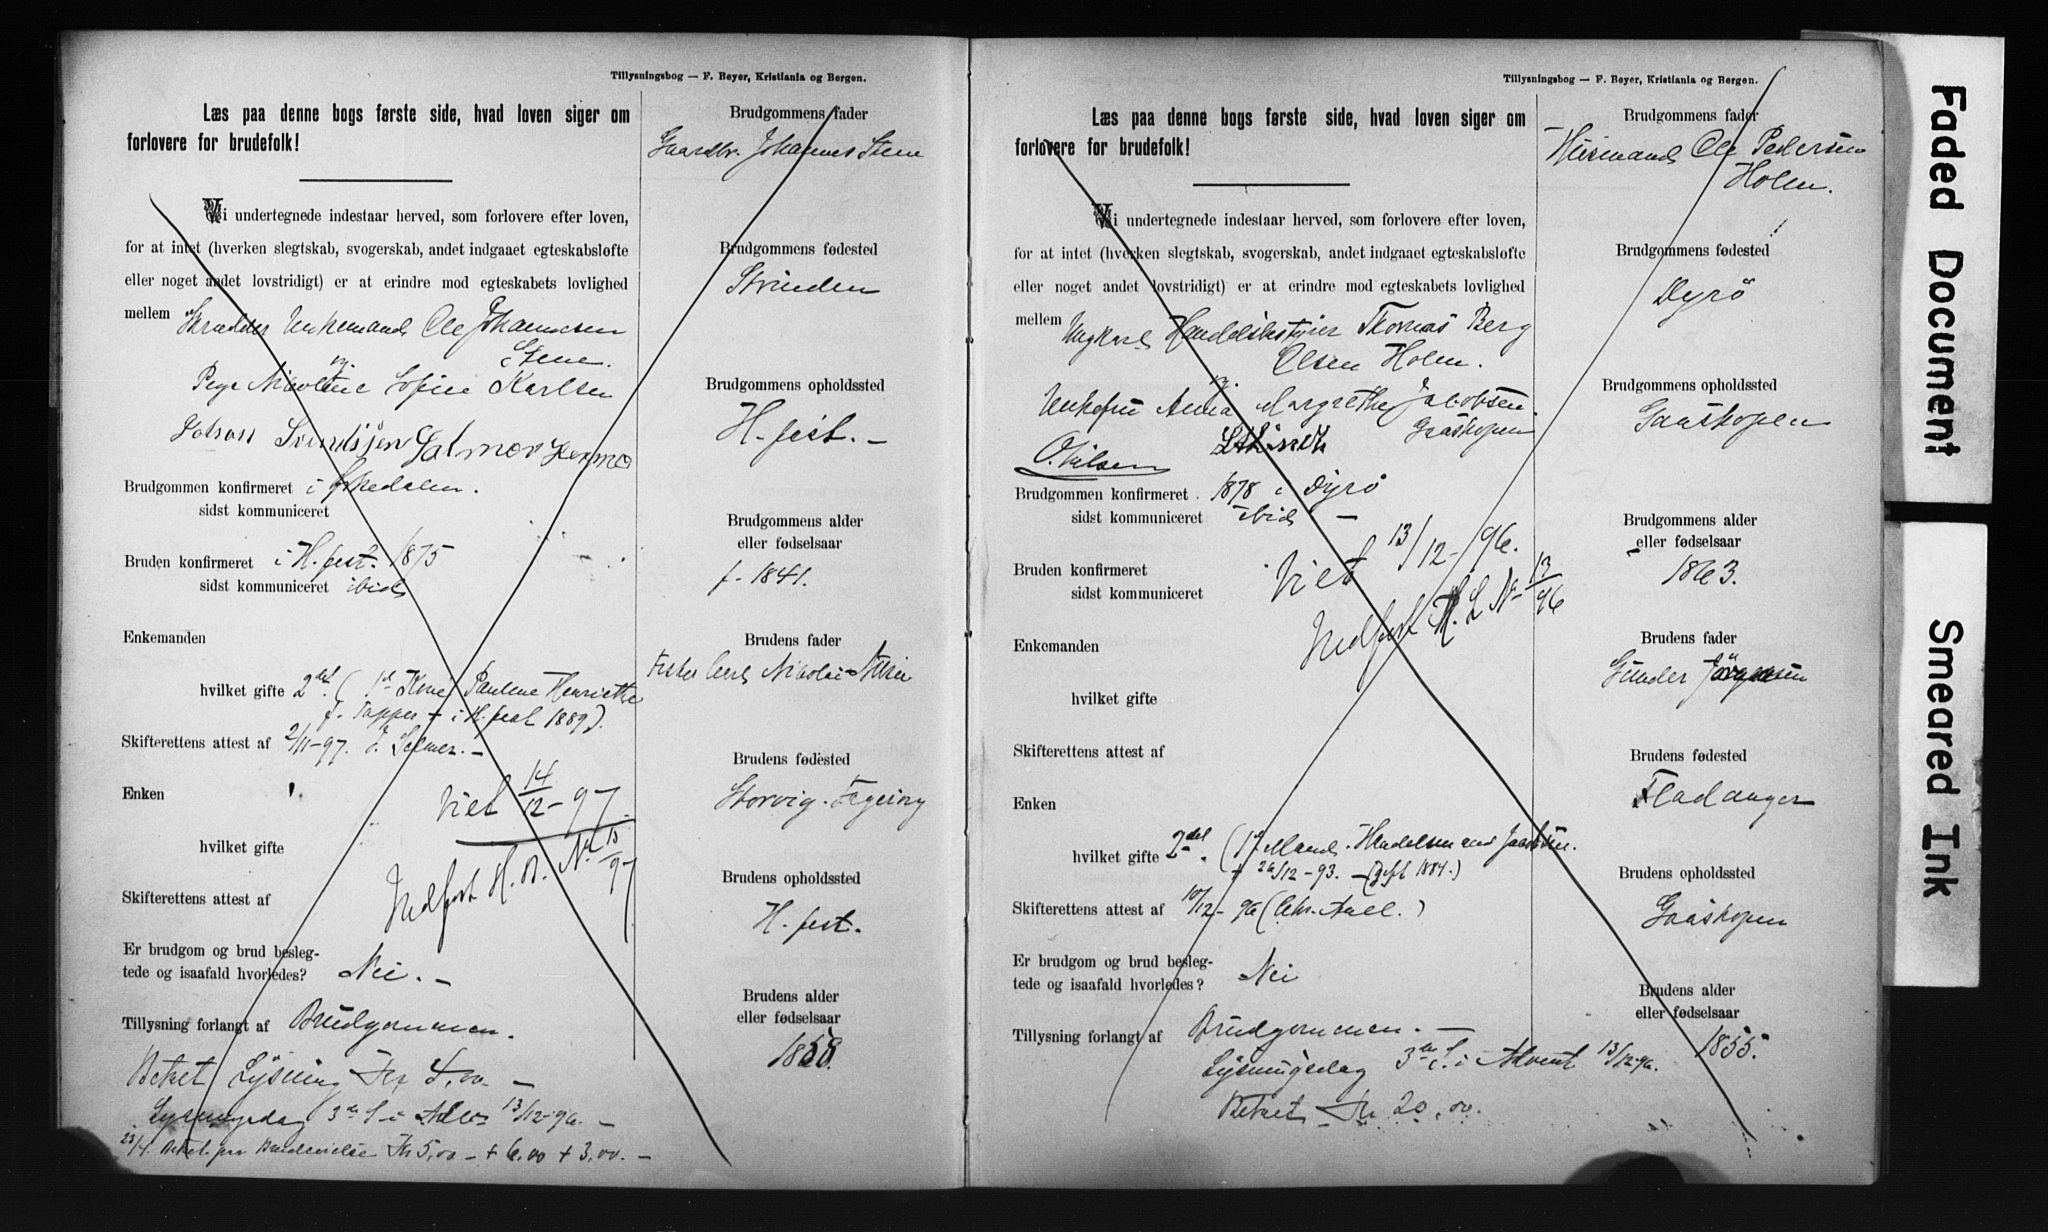 Tillysningsbog — F. Beyer, Kristiania og Bergen.
Læs paa denne bogs første side, hvad loven siger om
forlovere for brudefolk!
Vi undertegnede indestaar herved, som forlovere efter loven,
for at intet (hverken slegtskab, svogerskab, andet indgaaet egteskabsløfte
eller noget andet lovstridigt) er at erindre mod egteskabets lovlighed
mellem Skrædder Enkemand Ole Johannesen
Stene.
og
Pige Nikoline Sofine Karlsen
Brudgommen konfirmeret i
sidst kommuniceret
Bruden konfirmeret i H.fest. 1875
sidst kommuniceret ibid
Enkemanden
hvilket gifte 2det. (1ste Kone Pauline Henriette
f. Tapper + i H.fest 1889).
Skifterettens attest af 2/11-97. J. Selmer. —
Enken
Viet 14/12-97
hvilket gifte
Indført H. B. No 15/97
Skifterettens attest af
Er brudgom og brud besleg-
tede og isaafald hvorledes? Nei. —
Tillysning forlangt af Brudgommen.
Betalt Lysning Kr 4,00 —
Lysningsdag 3de S. i Adv. 13/12-96. —
23/4. Betal. for Brudevielse Kr 5,00 — + 6,00 + 3,00. —
Brudgommens fader
Gaardbr. Johannes Stene
Brudgommens fødested
Strinden
Brudgommens opholdssted
H.fest. —
Brudgommens alder
eller fødselsaar
f. 1841.
Brudens fader
Fisker Carl Nikolai
Brudens fødested
Storvig.
Brudens opholdssted
H.fest.
Brudens alder
eller fødselsaar
1858.
Tillysningsbog — F. Beyer, Kristiania og Bergen.
Læs paa denne bogs første side, hvad loven siger om
forlovere for brudefolk!
Vi undertegnede indestaar herved, som forlovere efter loven,
for at intet (hverken slegtskab, svogerskab, andet indgaaet egteskabsløfte
eller noget andet lovstridigt) er at erindre mod egteskabets lovlighed
mellem Ungkarl Handelsbestyrer Thomas Berg
Olsen Holm.
og
Enkefru Anna Margrethe Jacobsen
Gaaskopen
O. Nilsen
Brudgommen konfirmeret 1878 i Dyrø
sidst kommuniceret ibid —
Viet 13/12-96.
Bruden konfirmeret
sidst kommuniceret
Indført H. L No 13/96
Enkemanden
hvilket gifte
Skifterettens attest af
Enken
hvilket gifte 2det. (1ste Mand. Handelsmand Jacobsen.
+ 26/12-93. — Gift 1884.)
Skifterettens attest af 10/12-96 (Chr. Aall.)
Er brudgom og brud besleg-
tede og isaafald hvorledes? Nei
Tillysning forlangt af Brudgommen. —
Lysningsdag 3de S. i Advent 13/12-96.
Betalt Kr 20,00.
Brudgommens fader
Husmand Ole Pedersen
Holm.
Brudgommens fødested
Dyrö
Brudgommens opholdssted
Gaaskopen
Brudgommens alder
eller fødselsaar
1863.
Brudens fader
Gunder Jörgensen
Brudens fødested
Fladanger
Brudens opholdssted
Gaaskopen
Brudens alder
eller fødselsaar
1855.
Faded Document
Smeared Ink